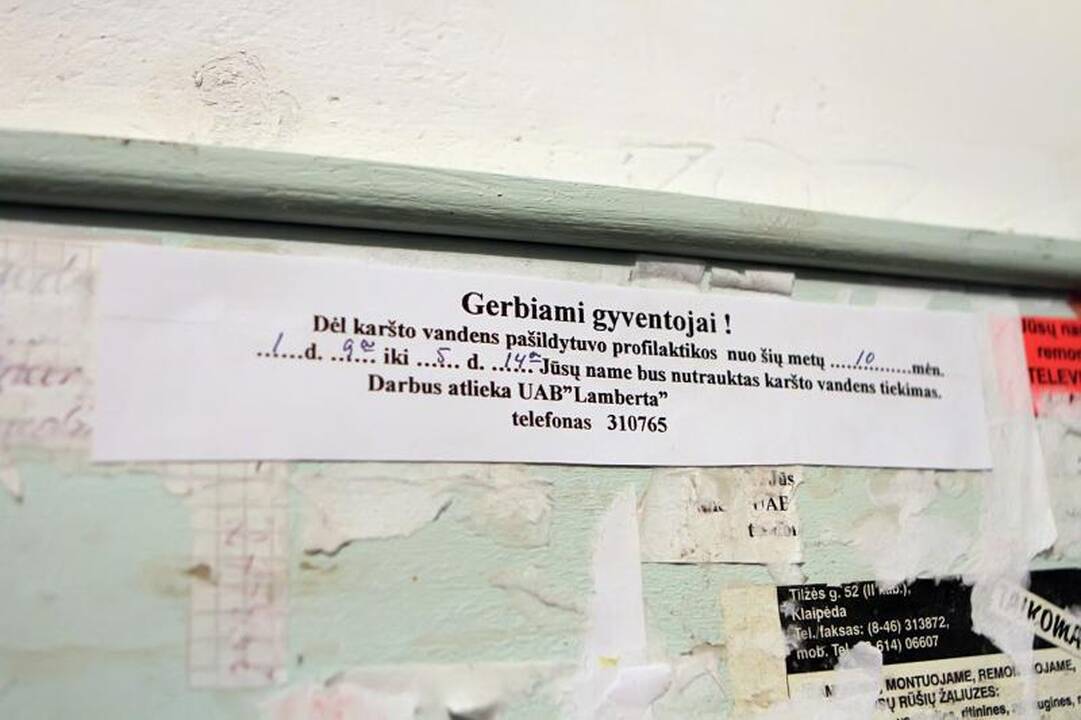 Gerbiami gyventojai !
Dėl karšto vandens pašildytuvo profilaktikos nuo šių metų ....10....mėn.
...1...d. ..9ºº.. iki ...5... d. ..14ºº..Jūsų name bus nutrauktas karšto vandens tiekimas.
Darbus atlieka UAB"Lamberta"
telefonas 310765
Jūsų
TELEV
Jūs
UAB
Tilžės g. 52 (II kab.),
Klaipėda
Tel./faksas: (8-46) 313872,
mob. Tel. 614) 06607
TAIKOMA
MONTUOJAME,
RŪŠIŲ ŽALIUZES:
ritinines,